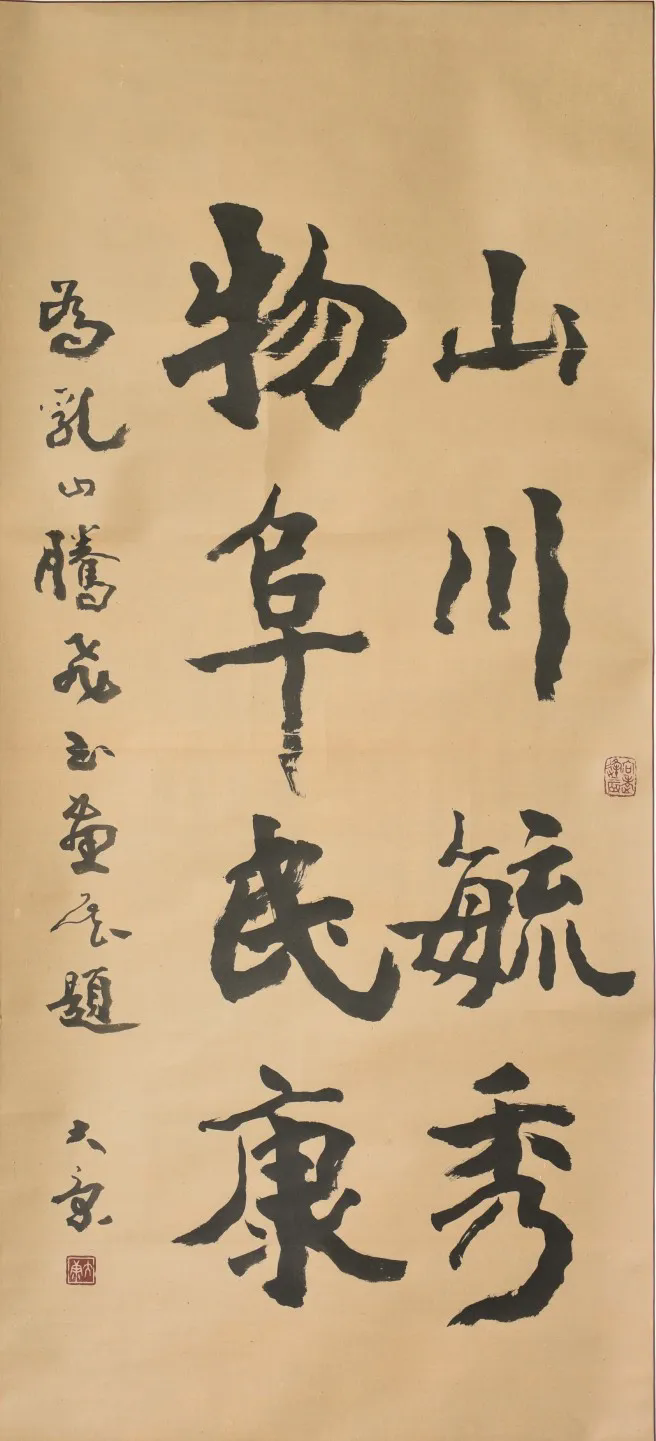 山川毓秀
物阜民康
為乳山騰飛书畫展題
大康